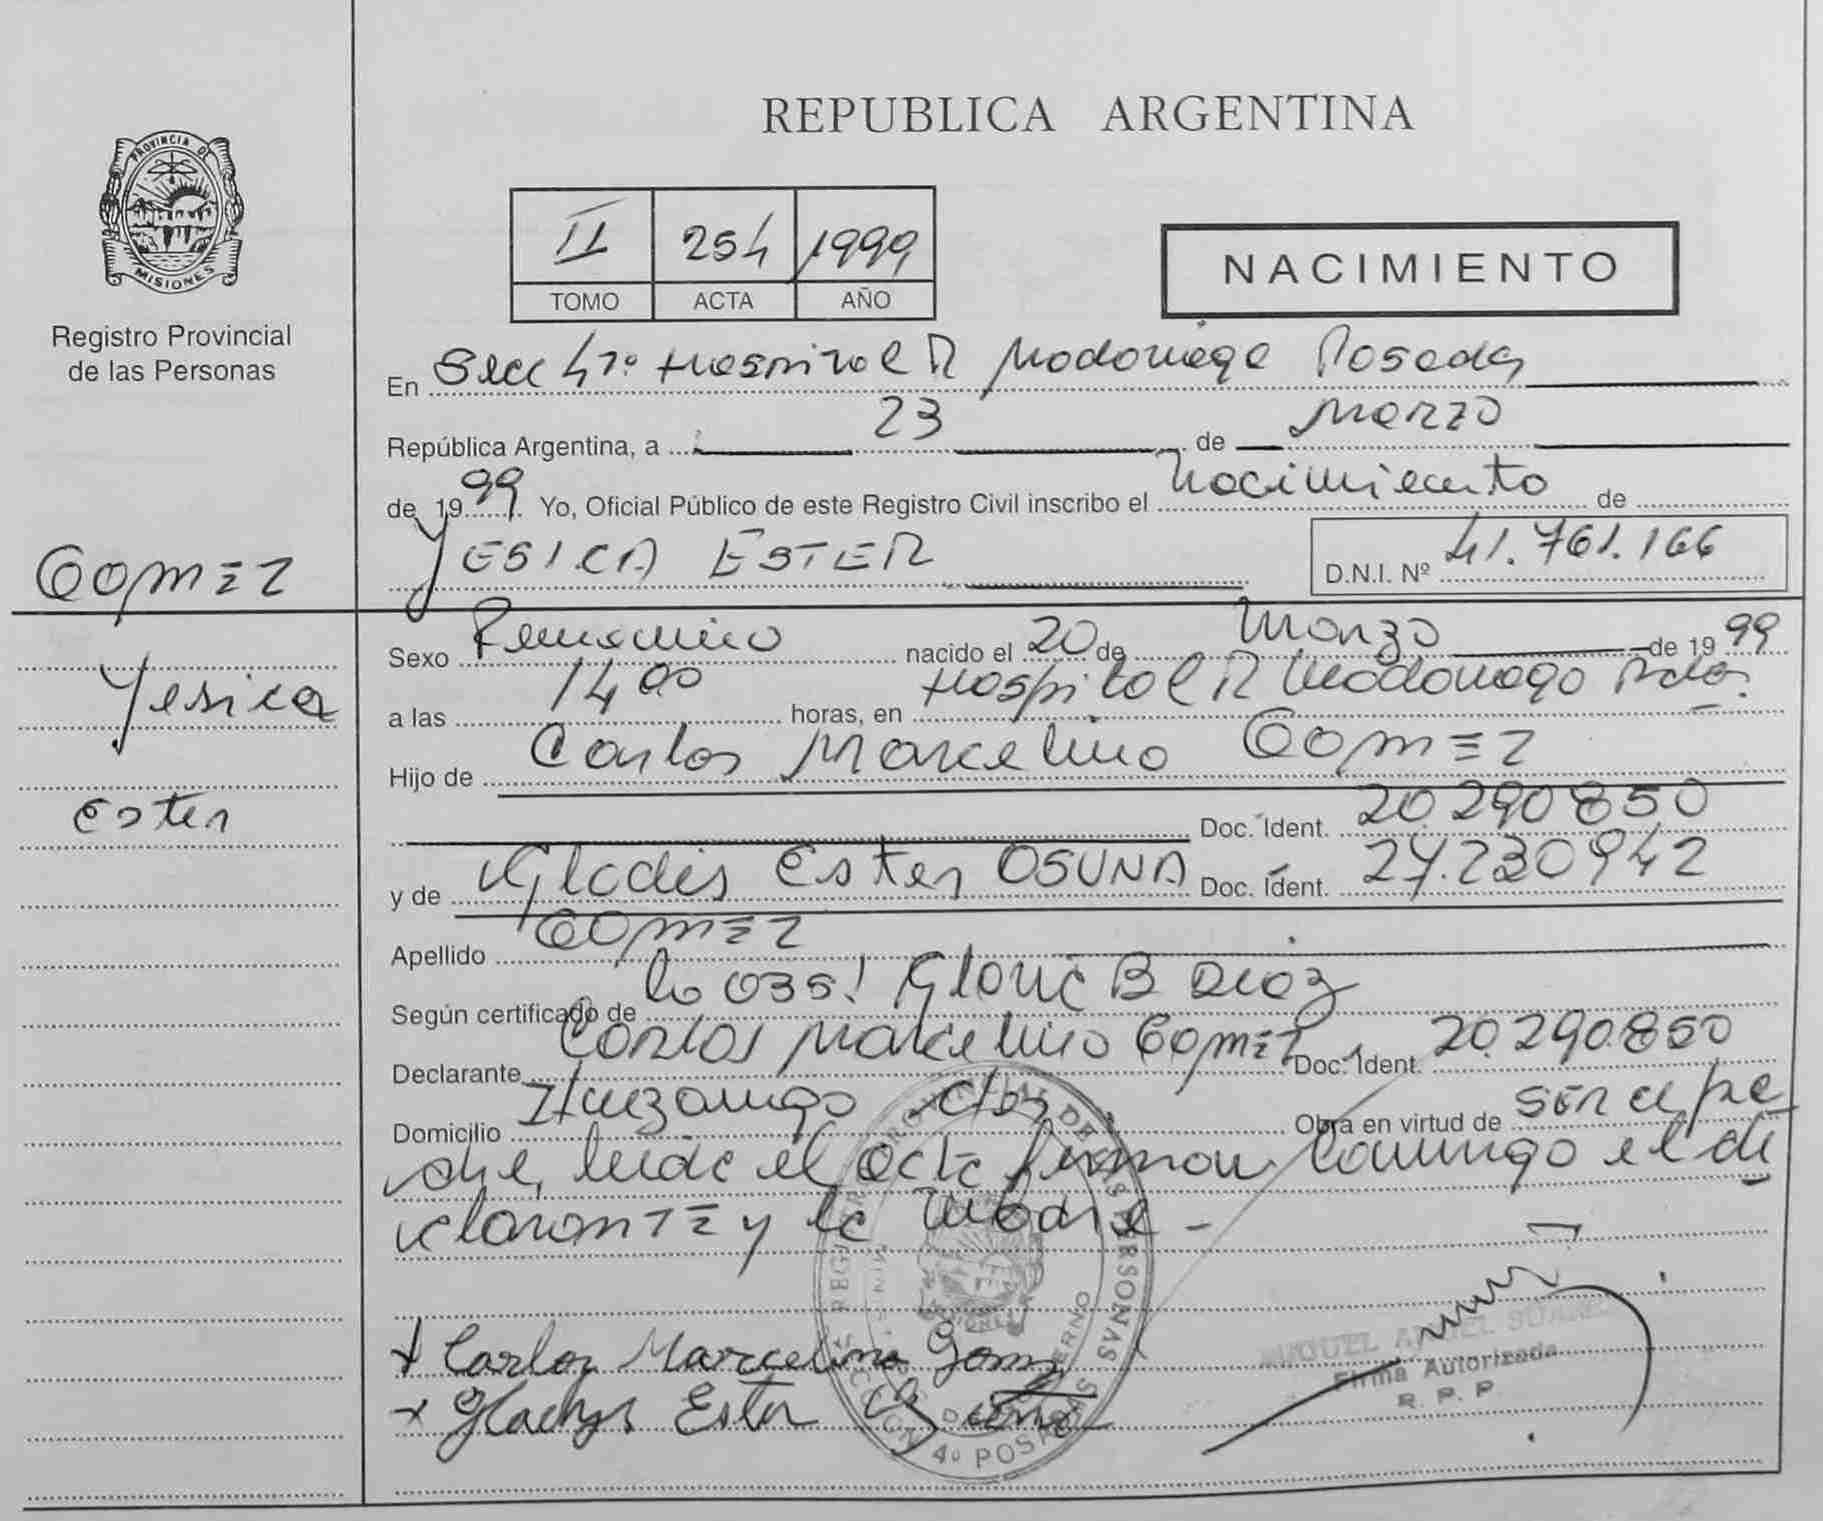 PROVINCIA DE
MISIONES
Registro Provincial
de las Personas
GOMEZ
Yesica
Ester
REPUBLICA ARGENTINA
II 254 1999
TOMO ACTA AÑO
NACIMIENTO
En Secc 4ta. Hospital R Madariaga Posadas
República Argentina, a 23 de Marzo
de 1999 Yo, Oficial Público de este Registro Civil inscribo el nacimiento de
YESICA ESTER D.N.I. Nº 41.761.166
Sexo Femenino nacido el 20 de Marzo de 1999
a las 14 00 horas, en Hospital R Madariaga Pdas.
Hijo de Carlos Marcelino GOMEZ
Doc. Ident. 20.290850
y de Gladis Ester OSUNA Doc. Ident. 27.230942
Apellido GOMEZ
Según certificado de la obst Gloria B Diaz
Declarante Carlos Marcelino Gomez Doc. Ident. 20.290.850
Domicilio Ituzaingo Obra en virtud de ser el pa
dre, leida el acta firman conmigo el de
clarante y la Madre -
+ Carlos Marcelino Gomez
+ Gladys Ester
MIGUEL ANGEL SUAREZ
Firma Autorizada
R. P. P.
SECCION 4º POSADAS